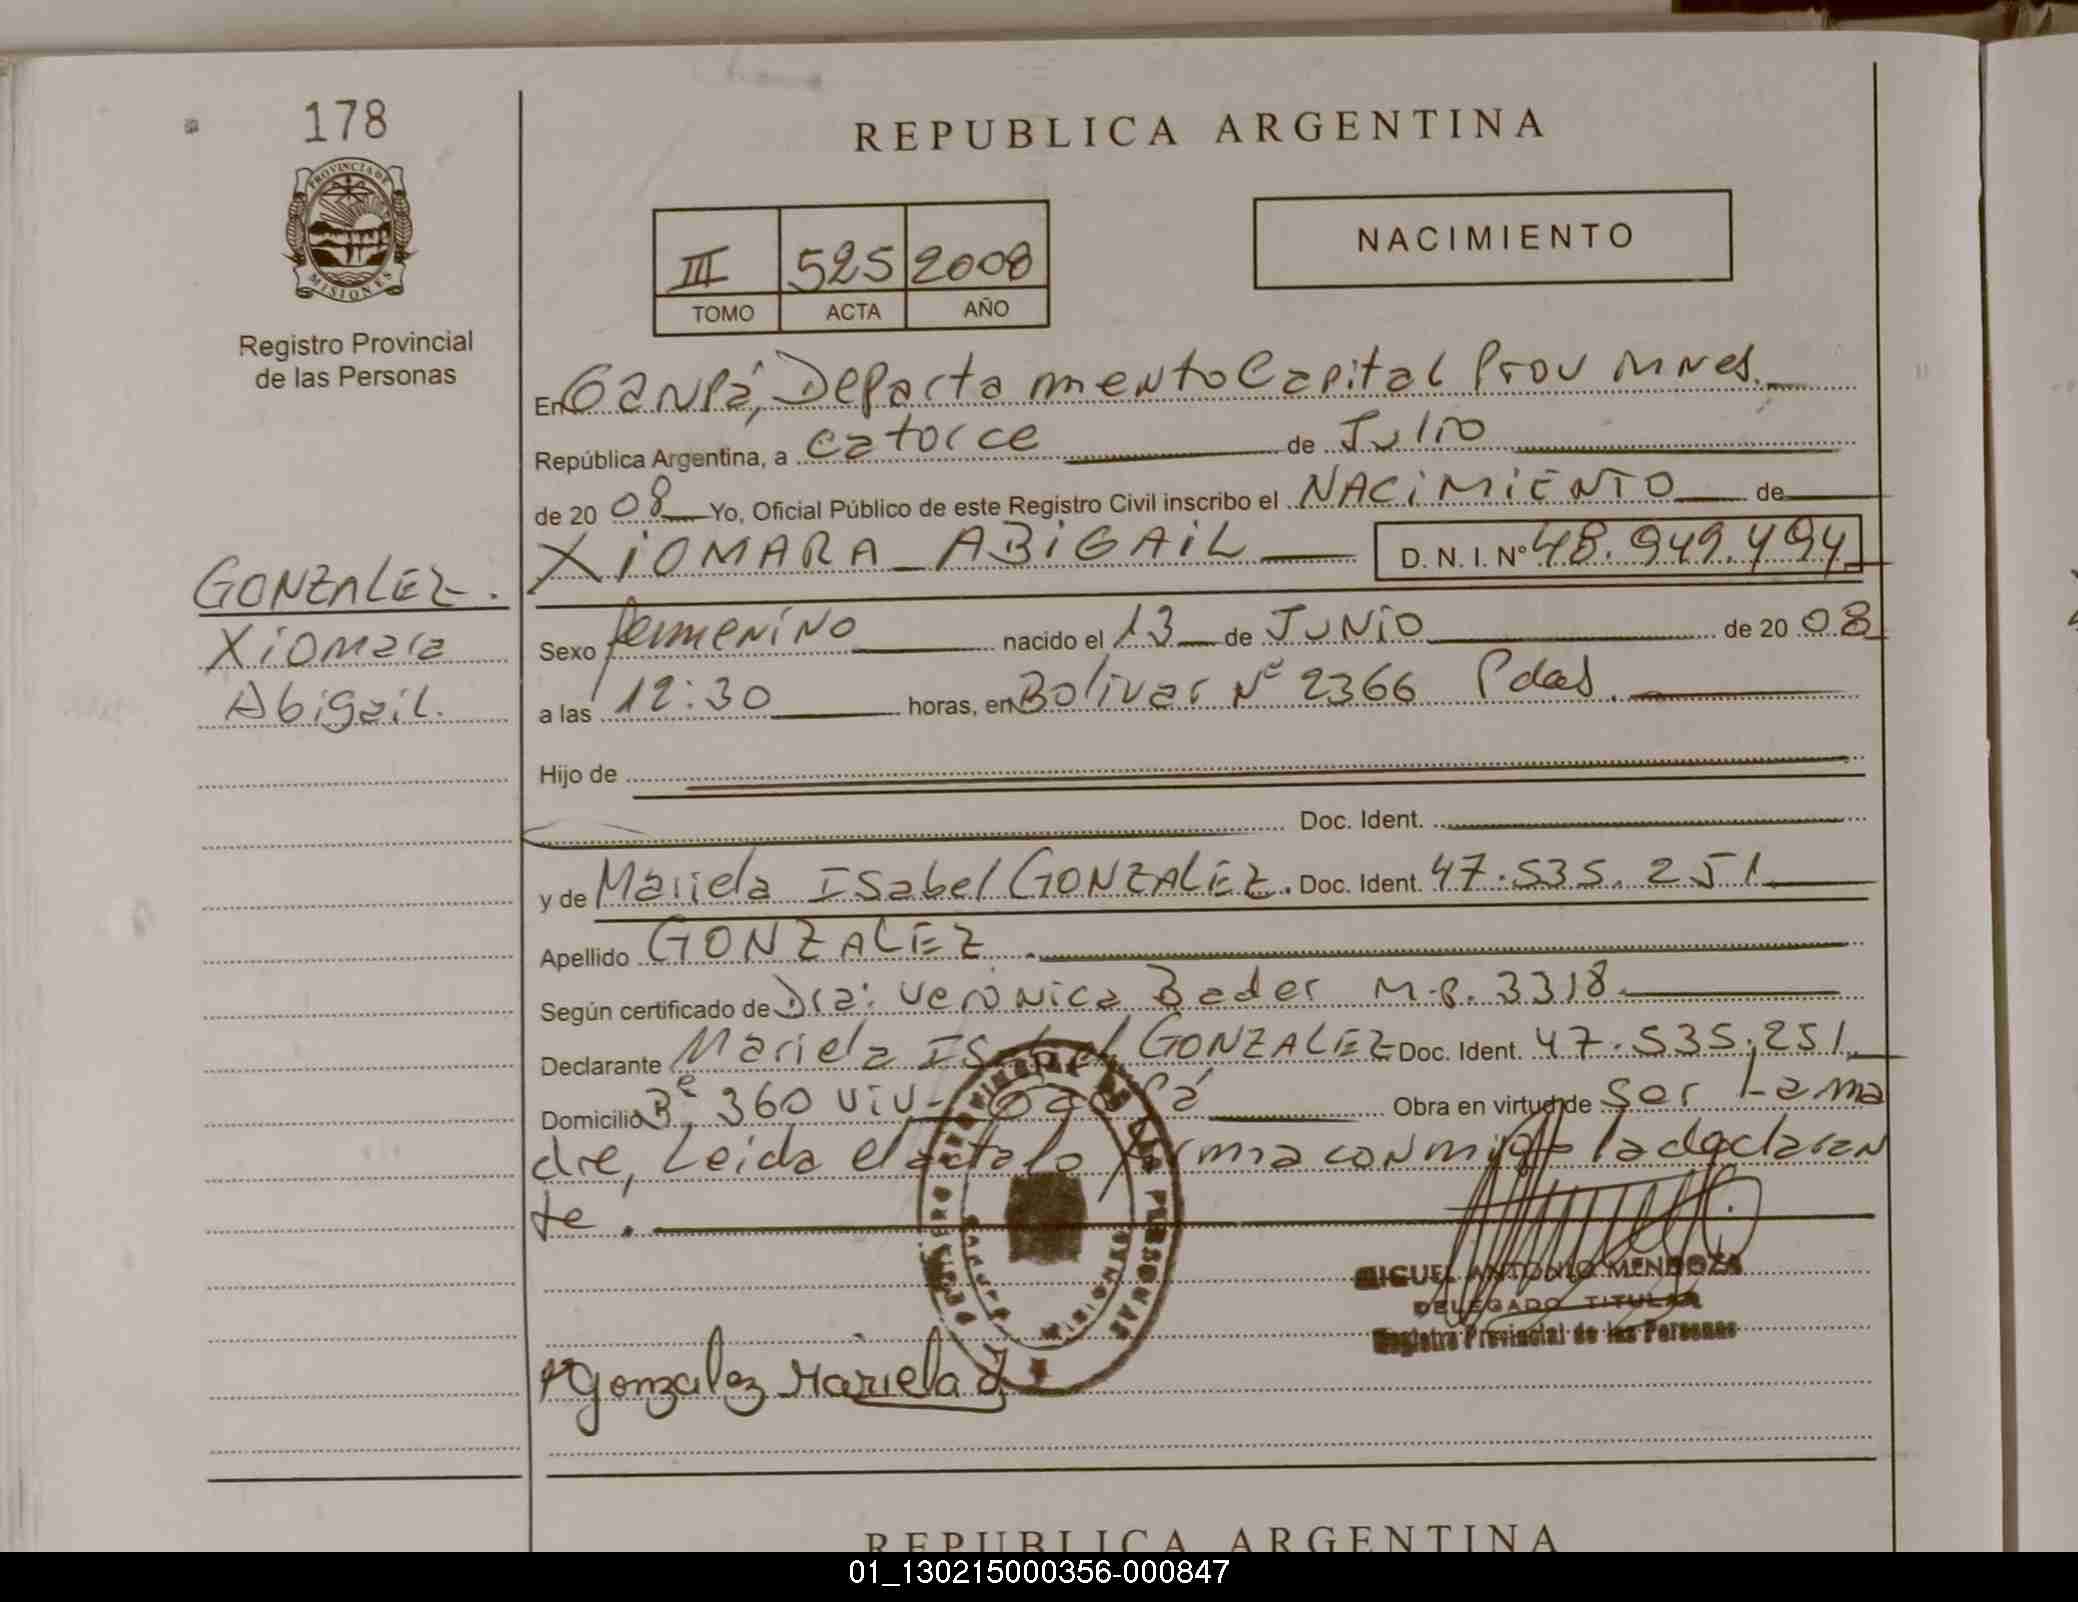 178
PROVINCIA DE
MISIONES
Registro Provincial
de las Personas
GONZALEZ.
Xiomara
Abigail.
REPUBLICA ARGENTINA
III 525 2008
TOMO ACTA AÑO
NACIMIENTO
En Garupá, Departamento Capital Prov Mnes.
República Argentina, a catorce de Julio
de 20 08 Yo, Oficial Público de este Registro Civil inscribo el NACIMIENTO de
XIOMARA ABIGAIL D. N. I. Nº 48.949.494
Sexo femenino nacido el 13 de JUNIO de 20 08
a las 12:30 horas, en Bolivar Nº 2366 Pdas.
Hijo de
Doc. Ident.
y de Mariela Isabel GONZALEZ. Doc. Ident. 47.535.251
Apellido GONZALEZ
Según certificado de Dra: Veronica Bader M.P. 3318
Declarante Mariela Isabel GONZALEZ Doc. Ident. 47.535.251
Domicilio Bº 360 Viv- Obra en virtud de ser La ma
dre, Leida el acta lo firma conmigo la declaran
te.
MIGUEL ANTONIO MENDOZA
DELEGADO TITULAR
Registro Provincial de las Personas
Gonzalez Mariela I
REPUBLICA ARGENTINA
01_130215000356-000847